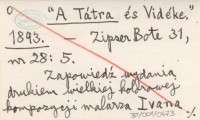 "A Tátra és Vidéke."
1893. — Zipser Bote 31,
nr 28: 5.
Zapowiedź wydania
drukiem wielkiej kolorowej
kompozycji malarza Ivana